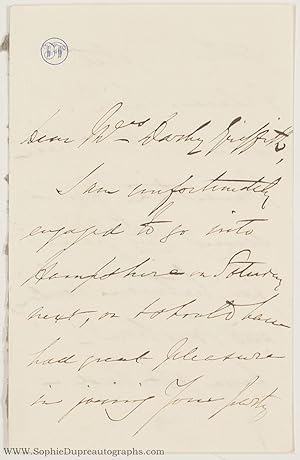 Dear Mrs Darby Griffith,
I am unfortunately
engaged to go into
Hampshire on Saturday
next, or I should have
had great pleasure
in joining your party
www.SophieDupreautographs.com